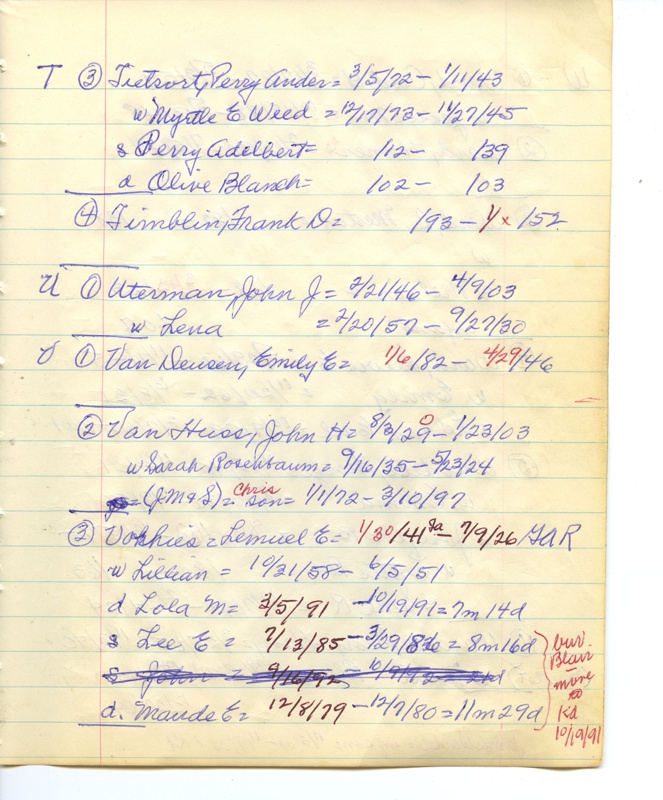 T ③ Tietsort, Perry Ander = 3/5/72 - 1/11/43
w Myrtle E Weed = 12/17/73 - 11/27/45
s Perry Adelbert = /12 - /39
d Olive Blanch = /02 - /03
④ Timblin, Frank D = /93 - 1/x /52
U ① Uterman, John J = 2/21/46 - 4/9/03
w Lena = 2/20/57 - 9/27/30
V ① Van Deusen, Emily E = 1/6/82 - 4/29/46
② Van Huss, John H = 8/3/29 - 1/23/03
w Sarah Rosenbaum = 9/16/35 - 5/23/24
= (J.M & S) = Chris son = 1/1/72 - 3/10/97
③ Vorhies = Lemuel E = 1/30/41 - 7/9/26 /GAR
w Lillian = 10/21/58 - 6/5/51
d Lola M = 3/5/91 - 10/19/91 = 7m 14d
s Lee E = 7/13/85 - 3/29/86 = 8m 16d
s John = 9/16/92 -
d. Maude E = 12/8/79 - 12/7/80 = 11m 29d
bur.
Blair
move
to
Kd
10/19/91